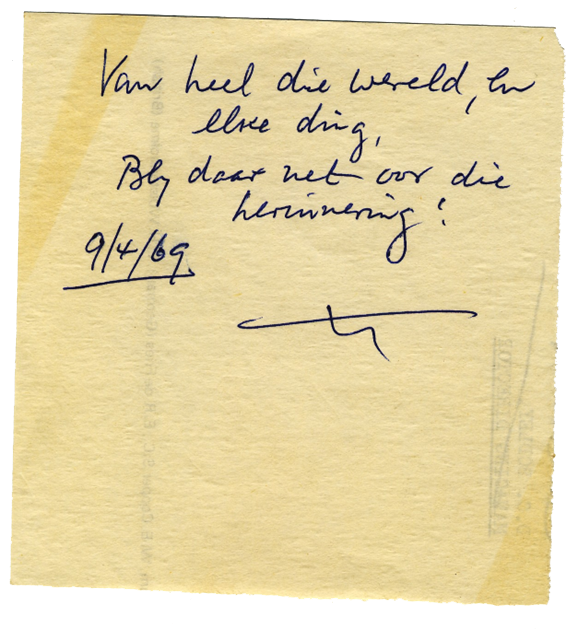 Van heel die wereld, en
elke ding,
Bly daar net oor die
herinnering!
9/4/69